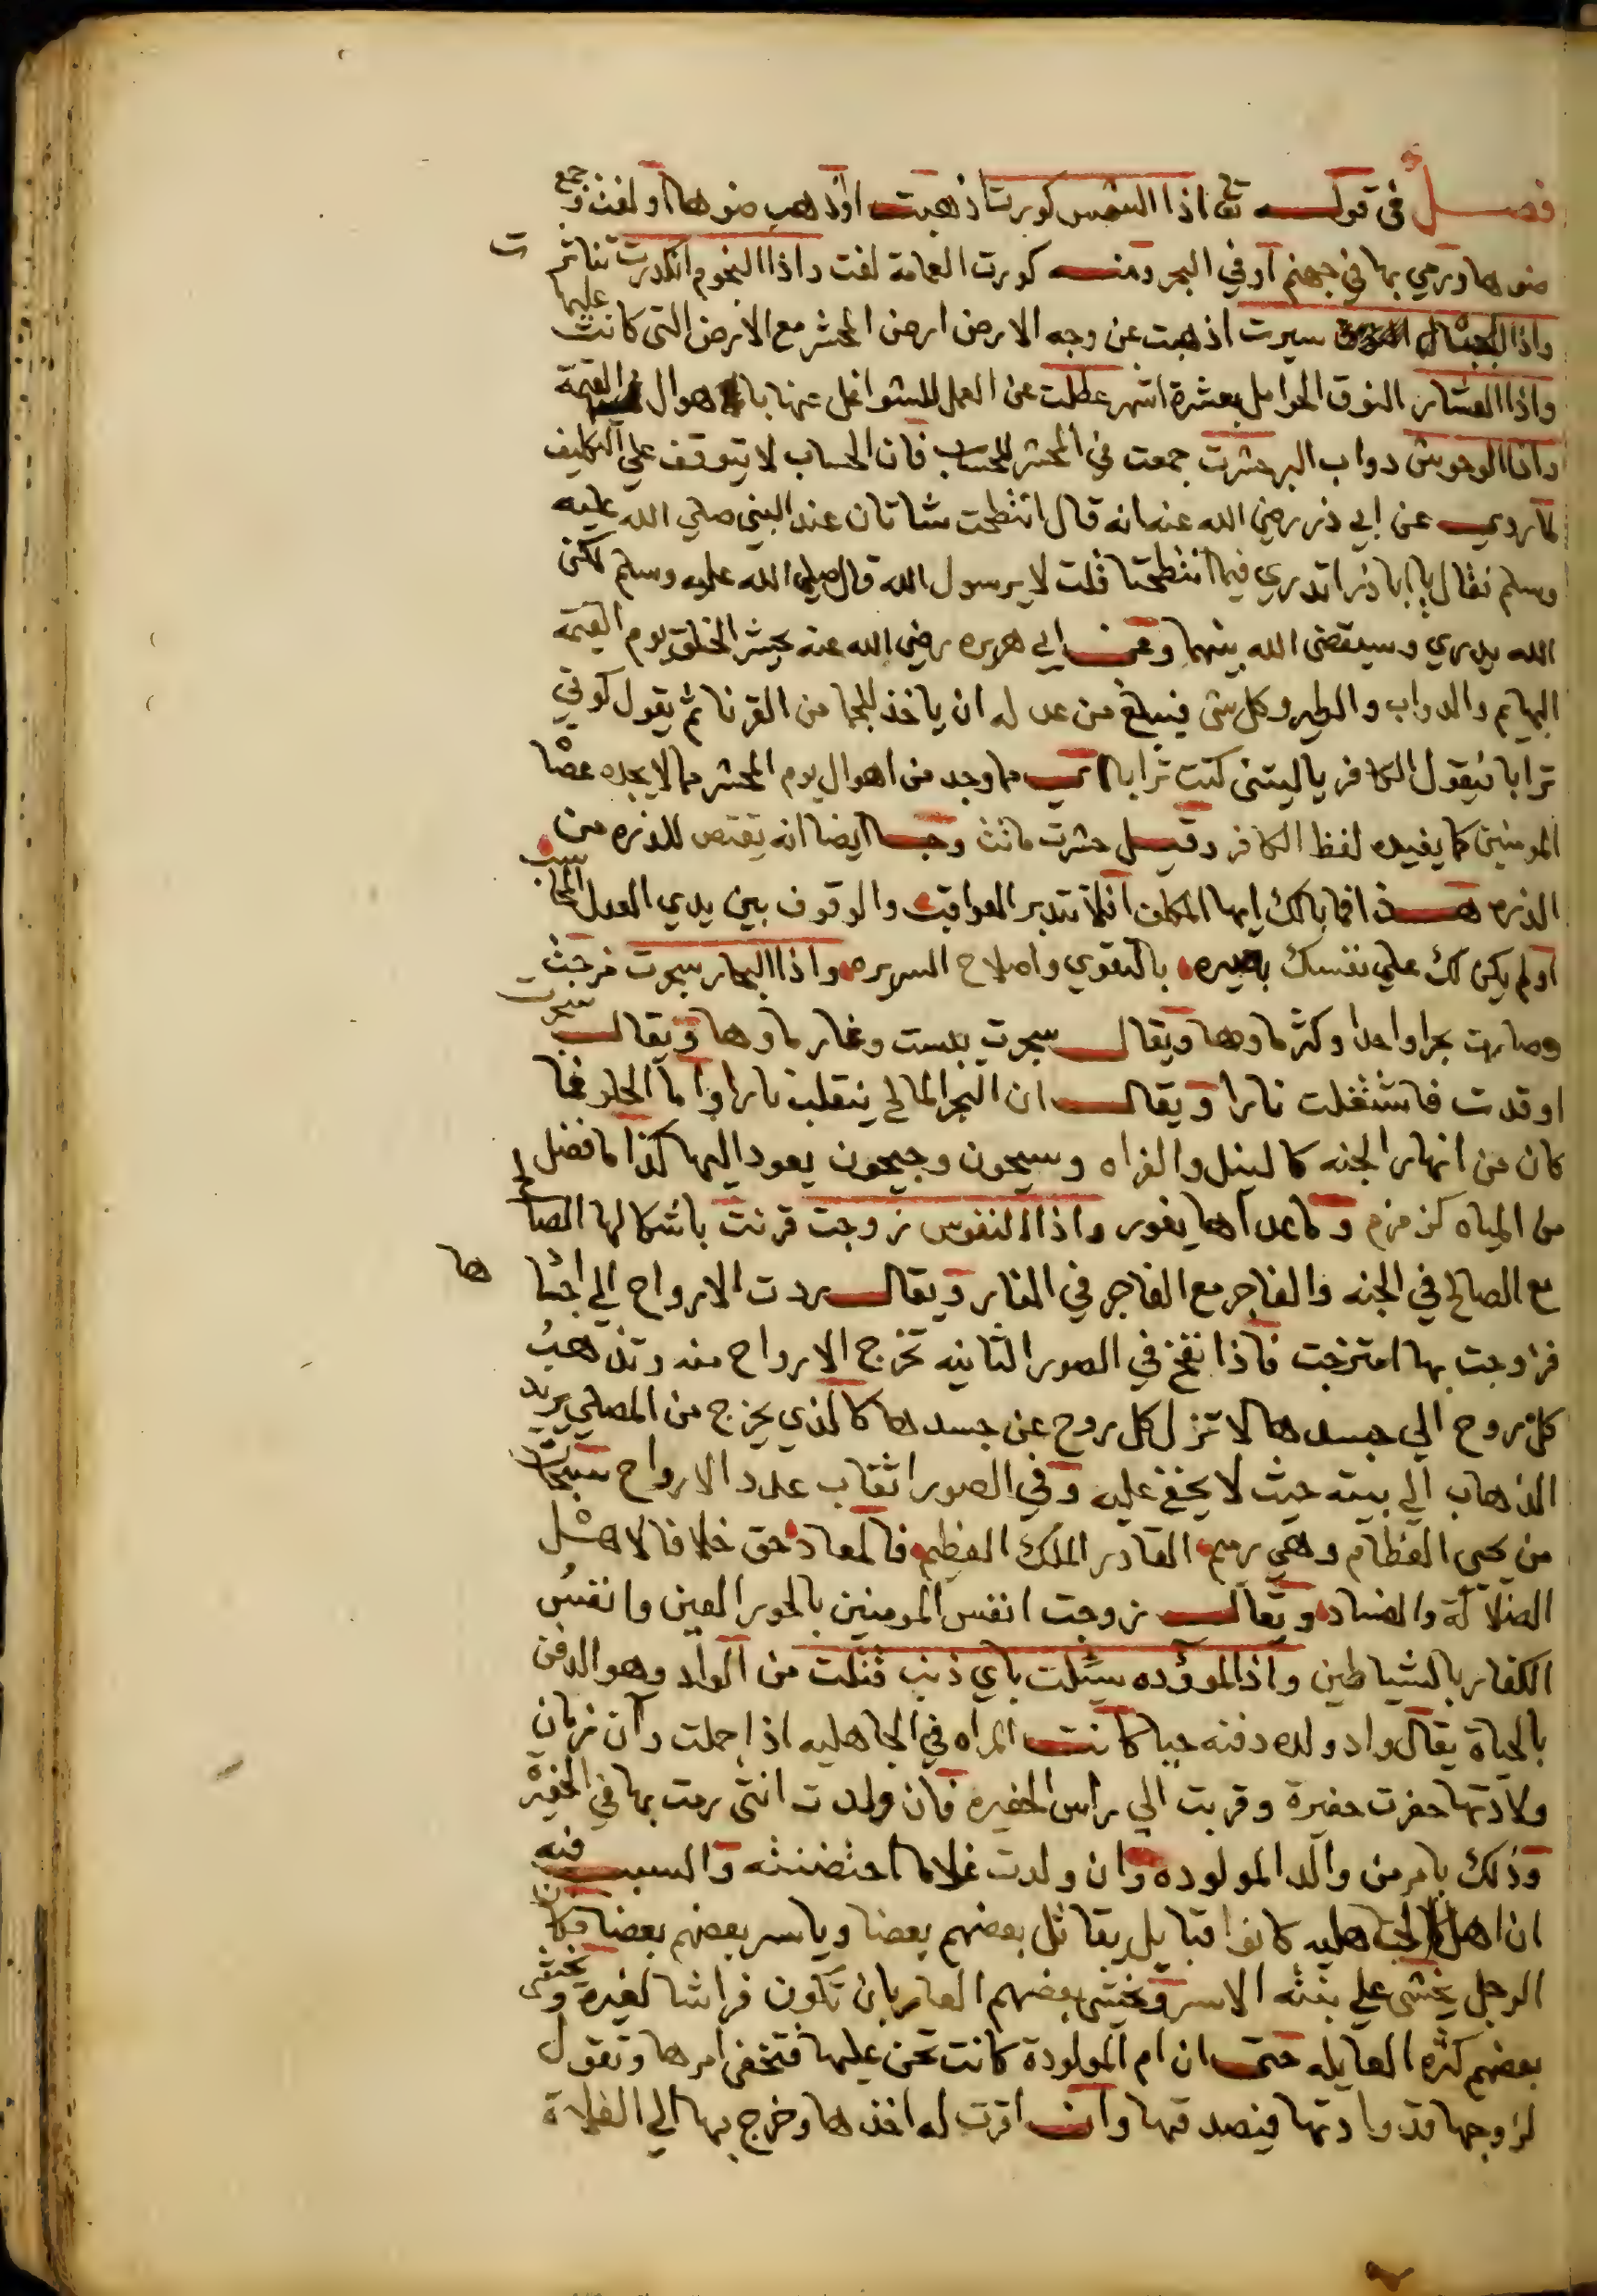 فصل في قوله تع اذا الشمس كورت اذهبت اوذهب ضوها او لفت وجمع
ضوها ورمي بها في جهنم او في البحر ومنه كورت العمامة لفت واذا النجوم انكدرت تناثرت
واذا الجبال سيرت اذهبت عن وجه الارض ارض المحشر مع الارض التي كانت عليها
واذا العشار النوق الحوامل بعشرة اشهر عطلت عن العمل للشواغل عنها باهوال القيمة
واذا الوحوش دواب البر حشرت جمعت في المحشر للحساب فان الحساب لا يتوقف علي التكليف
لما روي عن ابي ذر رضي الله عنه انه قال انتطحت شاتان عند النبي صلي الله عليه
وسلم فقال يا اباذر اتدري فيما انتطحتا قلت لا يرسول الله قال صلي الله عليه وسلم لكن
الله يدري وسيقضي الله بينهما وعن ابي هريره رضي الله عنه يحشر الخلق يوم القيمه
البهايم والدواب والطير وكل شي فيبلغ من عدله ان ياخذ للجما من القرنا ثم يقول كوني
ترابا فيقول الكافر ياليتني كنت ترابا اي مما وجد من اهوال يوم المحشر مما لا يجده عصا
المومنين كما يفيده لفظ الكافر وقيل حشرت ماتت وجا ايضا انه يقتص للذره من
الذره هذا فما بالك ايها المكلف افلا تتدبر العواقب والوقوف بين يدي العدل المحاسب
اولم يكن لك علي نفسك بصيره بالتقوي واصلاح السريره واذا البحار سجرت مزجت
وصارت بحرا واحدا وكثر ماوها ويقال سجرت يبست وغار ماوها ويقال سجرت
اوقدت فاشتغلت نارا ويقال ان البحر المالح ينقلب نارا واما الحلو فما
كان من انهار الجنه كالنيل والفراه وسيحون وجيحون يعود اليها كذا ما فضل
من المياه كزمزم وما عداها يغور واذا النفوس زوجت قرنت باشكالها الصالح
مع الصالح في الجنه والفاجر مع الفاجر في النار ويقال ردت الارواح الي اجثاها
فزوجت بها امتزجت فاذا نفخ في الصور الثانيه تخرج الارواح منه وتذهب
كل روح الي جسدها لا تزل كل روح عن جسدها كالذي يخرج من المصلي يريد
الذهاب الي بيته حيث لا يخفي عليه وفي الصور اثقاب عدد الارواح سبحان
من يحي العظام وهي رميم القادر الملك العظيم فالمعاد حق خلافا لاهل
الضلالة والفساد ويقال زوجت انفس المومنين بالحور العين وانفس
الكفار بالشياطين واذا الموؤده سئلت باي ذنب قتلت من الواد وهو الدفن
بالحياة يقال واد ولده دفنه حيا كانت المراه في الجاهليه اذا حملت وآن زمان
ولادتها حفرت حفيرة وقربت الي راس الحفيره فان ولدت انثي رمت بها في الحفيرة
وذلك بامر من والد المولوده وان ولدت غلاما احتضنته والسبب فيه
ان اهل الجاهليه كانوا قبايل يقاتل بعضهم بعضا وياسر بعضهم بعضا فكان
الرجل يخشي علي بنته الاسر ويخشي بعضهم العار بان تكون فراشا لغيره ويخشي
بعضهم كثره العايله حتي ان ام المولودة كانت تحن عليها فتخفي امرها وتقول
لزوجها قد وادتها فيصدقها وان اقرت له اخذها وخرج بها الي الفلاة